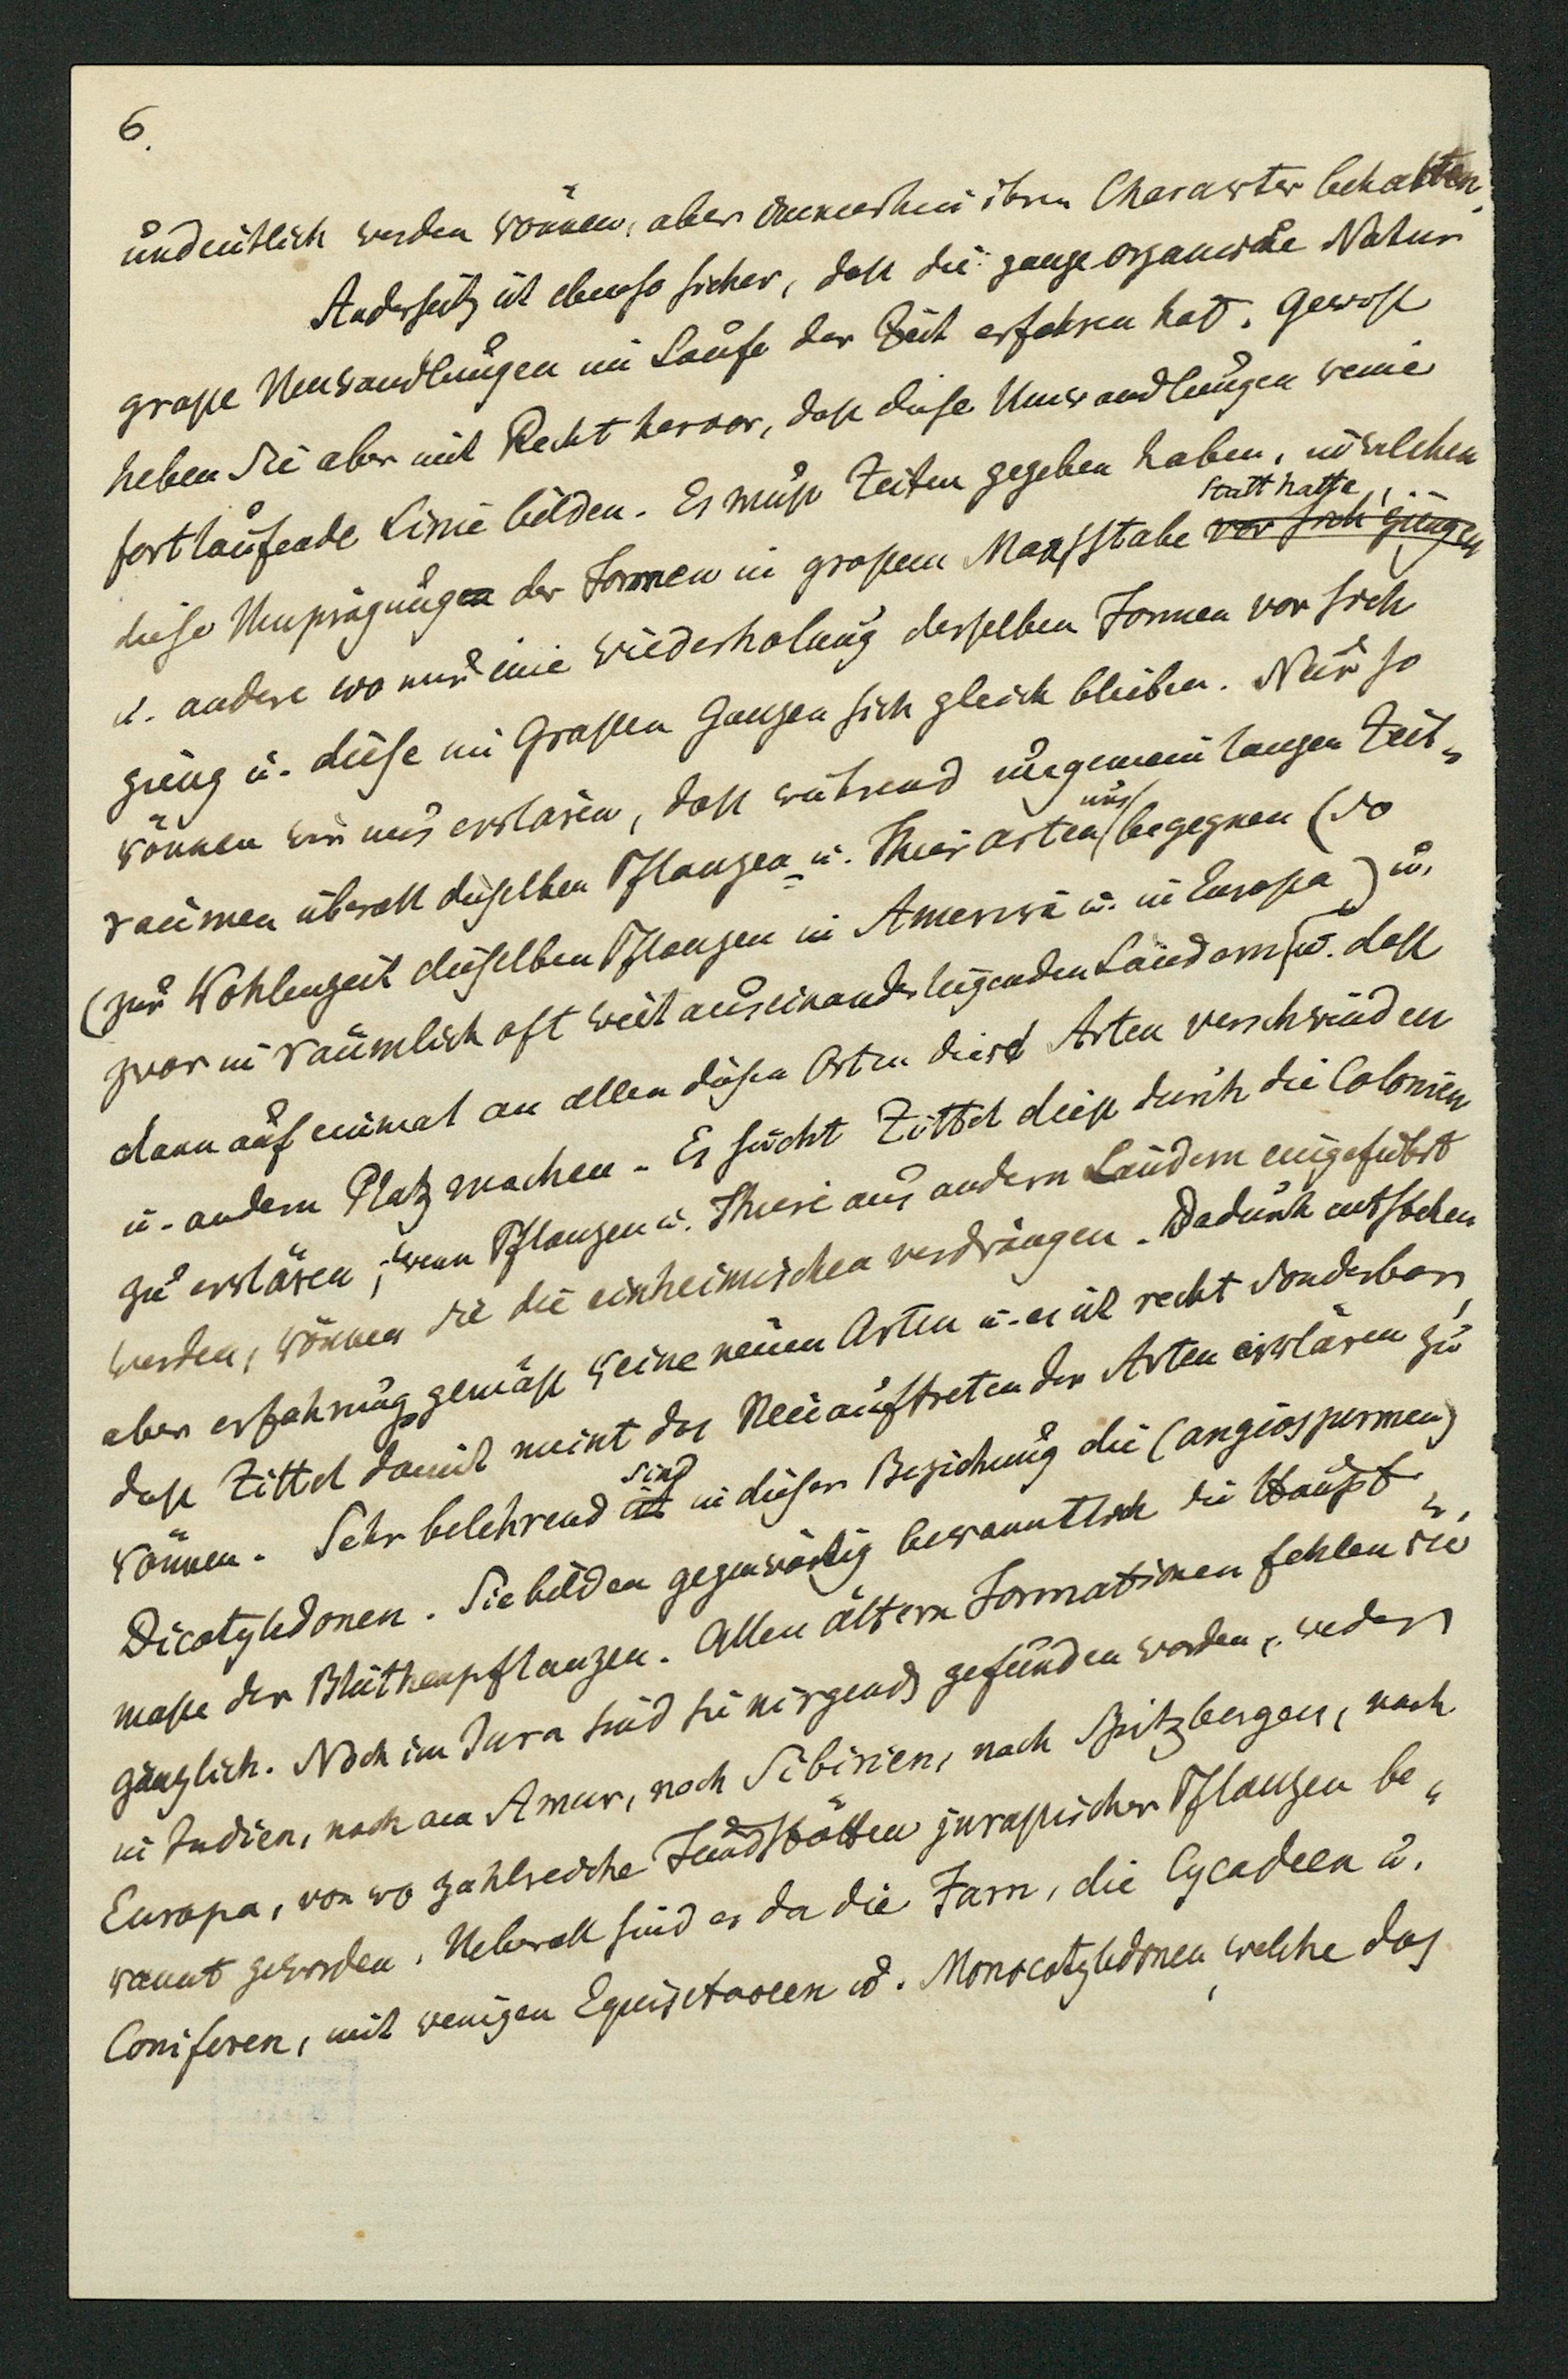 6.
undeutlich werden können, aber immerhin ihren Charakter behalten.
Anderseits ist ebenso sicher, dass die ganze organische Natur
grosse Umwandlungen im Laufe der Zeit erfahren hat. Gewiss
heben Sie aber mit Recht hervor, dass diese Umwandlungen keine
fortlaufende Linie bilden. Es muss Zeiten gegeben haben, in welchen
diese Umprägung der Formen in grossem Massstabe statt hatte, vor sich gingen
u. andere wo nur eine Wiederholung derselben Formen vor sich
ging u. diese im Grossen Ganzen sich gleich bleiben. Nur so
können wir uns erklären, dass während ungemein langen Zeit-
räumen überall dieselben Pflanzen- u. Thierarten uns begegnen (so
(zur Kohlenzeit dieselben Pflanzen in Amerika u. in Europa) u.
zwar in räumlich oft weit auseinanderliegenden Ländern) u. dass
dann auf einmal an allen diesen Orten diese Arten verschwinden
u. andern Platz machen. Es sucht Zittel diess durch die Colonien
zu erklären; wenn Pflanzen u. Thiere aus andern Ländern eingeführt
werden, können sie die einheimischen verdrängen. Dadurch entstehen
aber erfahrungsgemäss keine neuen Arten u. es ist recht sonderbar,
dass Zittel damit meint das Neuauftreten der Arten erklären zu
können. Sehr belehrend ist sind in dieser Beziehung die (angiospermen)
Dicotyledonen. Sie bilden gegenwärtig bekanntlich die Haupt-
masse der Blüthenpflanzen. Allen ältern Formationen fehlen sie
gänzlich. Noch im Jura sind sie nirgends gefunden worden, weder
in Indien, noch am Amur, noch Sibirien, noch Spitzbergen, noch
Europa, von wo zahlreiche Fundstätten jurassischer Pflanzen be-
kannt geworden. Ueberall sind es da die Farn, die Cycadeen u.
Coniferen, mit wenigen Equisetaceen u. Monocotyledonen, welche das